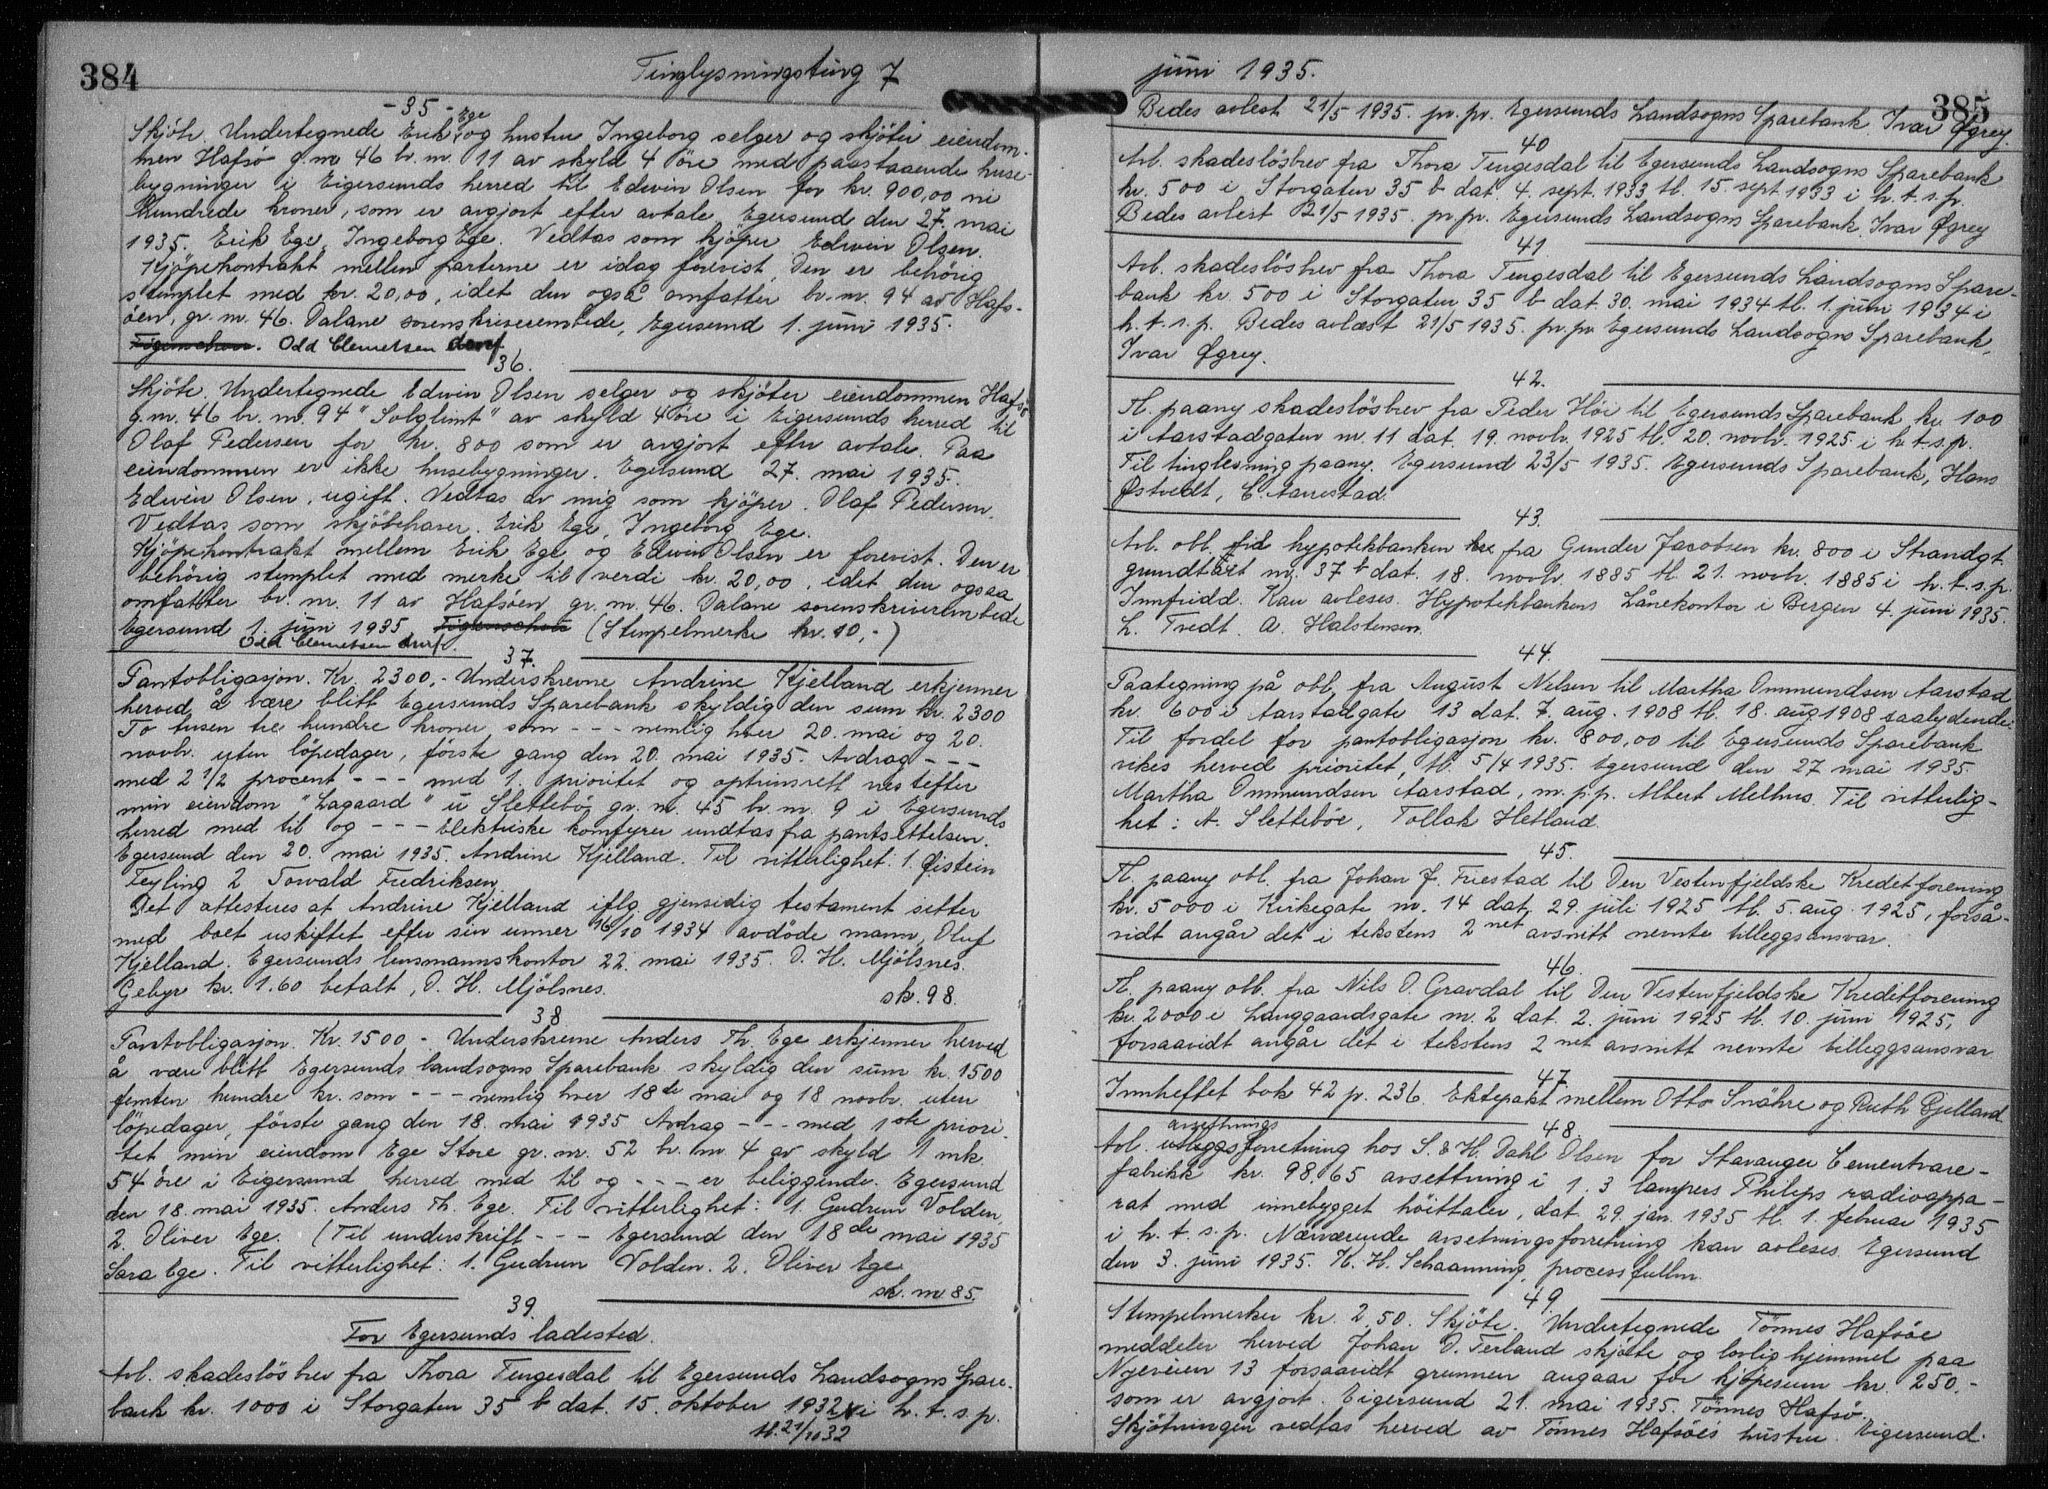 384
Tinglysningsting 7
-35-
Skjöte. Undertegnede Erik Ege og hustru Ingeborg selger og skjöter eiendom-
men Hafsö g.nr 46 br. nr. 11 av skyld 4 öre med paastaaende huse-
bygninger i Eigersunds herred til Edwin Olsen for kr. 900,00 ni
hundrede kroner, som er avgjort efter avtale. Egersund den 27. mai
1935. Erik Ege, Ingeborg Ege. Vedtas som kjöper Edwin Olsen.
Kjöpekontrakt mellem parterne er idag forevist. Den er behörig
stemplet med kr. 20,00, idet den også omfatter br. nr. 94 av Hafs-
öen, gr. nr. 46. Dalane sorenskriverembede, Egersund 1. juni 1935.
Odd Clemetsen
36.
Skjöte. Undertegnede Edwin Olsen selger og skjöter eiendommen Hafsö
g.nr. 46 br. nr. 94 "Solglimt" av skyld 4 öre i Eigersunds herred til
Olaf Pedersen for kr. 800 som er avgjort efter avtale. Paa
eiendommen er ikke husebygninger. Egersund 27. mai 1935.
Edwin Olsen, ugift. Vedtas av mig som kjöper. Olaf Pedersen.
Vedtas som skjötehaver. Erik Ege, Ingeborg Ege.
Kjöpekontrakt mellem Erik Ege og Edwin Olsen er forevist. Den er
behörig stemplet med merke til verdi kr. 20,00, idet den ogsaa
omfatter br. nr. 11 av Hafsöen gr. nr. 46. Dalane sorenskriverembede
Egersund 1. juni 1935 (Stempelmerke kr. 10,-)
Odd Clemetsen
37.
Pantobligasjon. Kr. 2300,- Underskrevne Andrine Kjelland erkjenner
herved å være blitt Egersunds Sparebank skyldig den sum kr. 2300
To tusen tre hundre kroner som --- nemlig hver 20. mai og 20.
novbr. uten löpedager, förste gang den 20. mai 1935. Avdrag ---
med 2 1/2 procent --- med 1. prioritet og optrinsrett nestefter
min eiendom "Lagaard" u Slettebö gr. nr. 45 br. nr. 9 i Egersunds
herred med til og --- elektriske komfyrer undtas fra pantsettelsen.
Egersund den 20. mai 1935. Andrine Kjelland. Til vitterlighet: 1. Øistein
Feyling 2 Torvald Fredriksen
Det attesteres at Andrine Kjelland iflg. gjensidig testament sitter
med boet uskiftet efter sin unner 16/10 1934 avdöde mann, Oluf
Kjelland. Egersunds lensmannskontor 22. mai 1935. O. H. Mjölsnes.
Gebyr kr. 1.60 betalt, O. H. Mjölsnes. sk. 98.
38
Pantobligasjon. Kr. 1500 - Underskrevne Anders Th. Ege erkjenner herved
å være blitt Egersunds landsogns Sparebank skyldig den sum kr. 1500
femten hundre kr. som --- nemlig hver 18de mai og 18 novbr. uten
löpedager, förste gang den 18. mai 1935 Avdrag --- med 1ste priori-
tet min eiendom Ege Store gr. nr. 52 br. nr. 4 av skyld 1 mk.
54 öre i Eigersund herred med til og --- er beliggende. Egersund
den 18. mai 1935. Anders Th. Ege. Til vitterlighet: 1. Gudrun Volden,
2. Oliver Ege. (Til underskrift --- Egersund den 18de mai 1935
Sara Ege. Til vitterlighet: 1. Gudrun Volden. 2. Oliver Ege
sk. nr 85.
39.
For Egersunds ladested.
Avl. skadeslösbrev fra Thora Tengesdal til Egersunds Landsogns Spare-
bank kr. 1000 i Storgaten 35 b dat. 15. oktober 1932 i h. t. s. p.
tl. 21/10 32
juni 1935.
385
Bedes avlest 21/5 1935. pr. pr. Egersunds Landsogns Sparebank. Ivar Øgrey.
40
Avl. skadeslösbrev fra Thora Tengesdal til Egersunds Landsogns Sparebank
kr. 500 i Storgaten 35 b dat. 4. sept. 1933 tl. 15. sept. 1933 i h. t. s. p.
Bedes avlest 21/5 1935. pr. pr. Egersunds Landsogns Sparebank, Ivar Øgrey
41
Avl. skadeslösbrev fra Thora Tengesdal til Egersunds Landsogns Spare-
bank kr. 500 i Storgaten 35 b dat. 30. mai 1934 tl. 1. juni 1934 i
h. t. s. p. Bedes avlæst 21/5 1935. pr. pr. Egersunds Landsogns Sparebank,
Ivar Øgrey.
42.
Tl. paany skadeslösbrev fra Peder Höi til Egersunds Sparebank kr. 100
i Aarstadgaten nr. 11 dat. 19. novbr. 1925 tl. 20. novbr. 1925 i h. t. s. p.
Til tinglesning paany. Egersund 23/5 1935. Egersunds Sparebank, Hans
Østvedt, C. Aarrestad.
43.
Avl. obl. hypotekbanken fra Gunder Jacobsen kr. 800 i Strandgt.
grundtaxt nr. 37 b dat. 18. novbr. 1885 tl. 21. novbr. 1885 i h. t. s. p.
Innfridd. Kan avleses. Hypotekbankens Lånekontor i Bergen 4. juni 1935.
L. Tvedt. A. Halstensen.
44.
Paategning på obl. fra August Nelsen til Martha Ommundsen Aarstad
kr. 600 i Aarstadgate 13 dat. 7. aug. 1908 tl. 18. aug 1908 saalydende:
Til fordel for pantobligasjon kr. 800,00 til Egersunds Sparebank
vikes herved prioritet, tl. 5/4 1935. Egersund den 27 mai 1935.
Martha Ommundsen Aarstad, m. p. p. Albert Melhus. Til vitterlig-
het: A. Sletteböe, Tollak Hetland
45.
Tl. paany obl. fra Johan J. Friestad til Den Vestenfjeldske Kreditforening
kr. 5000 i Kirkegate nr. 14 dat. 29. juli 1925 tl. 5. aug. 1925, forså-
vidt angår det i tekstens 2net avsnitt nevnte tilleggsansvar.
46.
Tl. paany obl. fra Nils O. Gravdal til Den Vestenfjeldske Kreditforening
kr. 2000 i Langgaardsgate nr. 2 dat. 2. juni 1925 tl. 10. juni 1925,
forsaavidt angår det i tekstens 2net avsnitt nevnte tilleggsansvar
47.
Innheftet bok 42 p. 236. Ektepakt mellem Otto Snähre og Ruth Gjelland.
48.
Avl. avsettnings utleggsforretning hos S. & H. Dahl Olsen for Stavanger Cementvare-
fabrikk kr. 98,65 avsettning i 1. 3 lampers Philips radioappa-
rat med innebygget höittaler, dat. 29. jan. 1935 tl. 1. februar 1935
i h. t. s. p. Nærværende avsetningsforretning kan avleses. Egersund
den 3. juni 1935. K. H. Schaanning, processfullm.
49.
Stempelmerker kr. 2.50. Skjöte. Undertegnede Tönnes Hafsöe
meddeler herved Johan O. Terland skjöte og lovlig hjemmel paa
Nyeveien 13 forsaavidt grunnen angaar for kjöpesum kr. 250.-
som er avgjort. Eigersund 21. mai 1935. Tönnes Hafsö.
Skjötningen vedtas herved av Tönnes Hafsöes hustru. Eigersund.